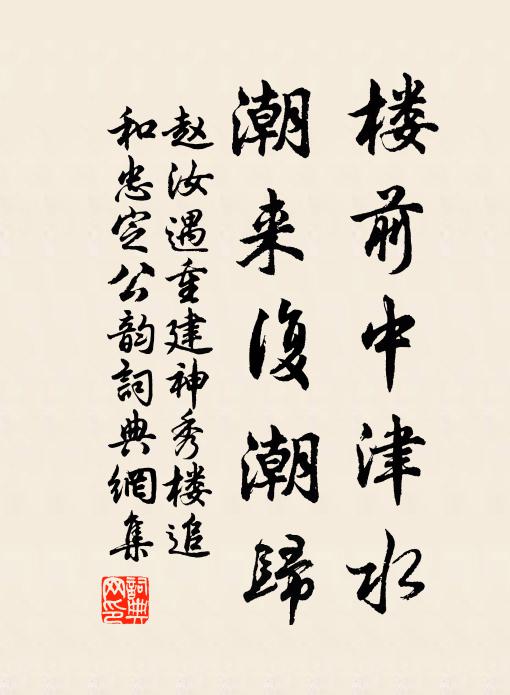 楼前中津水
潮来復潮歸
赵汝遇重建神秀楼追
和忠定公韵詞典網集
詞典网印